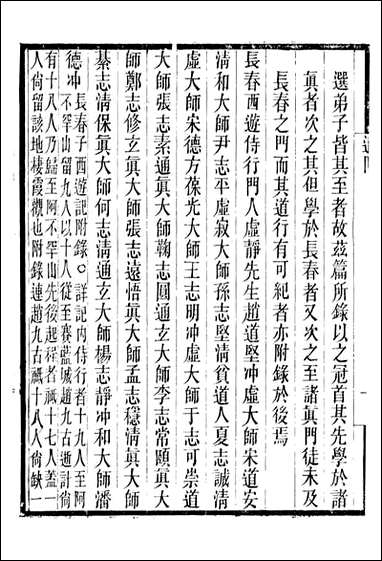 選弟子皆其至者故茲篇所錄以之冠首其先學於諸
眞者次之其但學於長春者又次之至諸眞門徒未及
長春之門而其道行有可紀者亦附錄於後焉
長春西遊侍行門人虛靜先生趙道堅冲虛大師宋道安
淸和大師尹志平虛寂大師孫志堅淸貧道人夏志誠淸
虛大師宋德方葆光大師王志明冲虛大師于志可崇道
大師張志素通眞大師鞠志圓通玄大師李志常頤眞大
師鄭志修玄眞大師張志遠悟眞大師孟志穩淸眞大師
綦志淸保眞大師何志淸通玄大師楊志靜冲和大師潘
德冲
長春子西遊記附錄○詳記內侍行者十九人至阿
不罕山留九人以十人從至賽藍城趙九古逝計尙
有十八人乃歸至阿不罕山先後起程者祇十七人蓋一
人尙留該地棲霞觀也附錄連趙九古祇十八人尙缺一